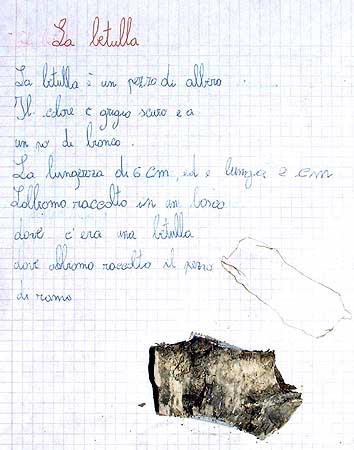 La betulla
La betulla è un pezzo di albero
Il colore è grigio scuro e a
un po' di bianco.
La lungezza di 6 cm, ed è lunga 2 cm
L'abbiamo raccolto in un bosco
dove c'era una betulla
dove abbiamo raccolto il pezzo
di ramo